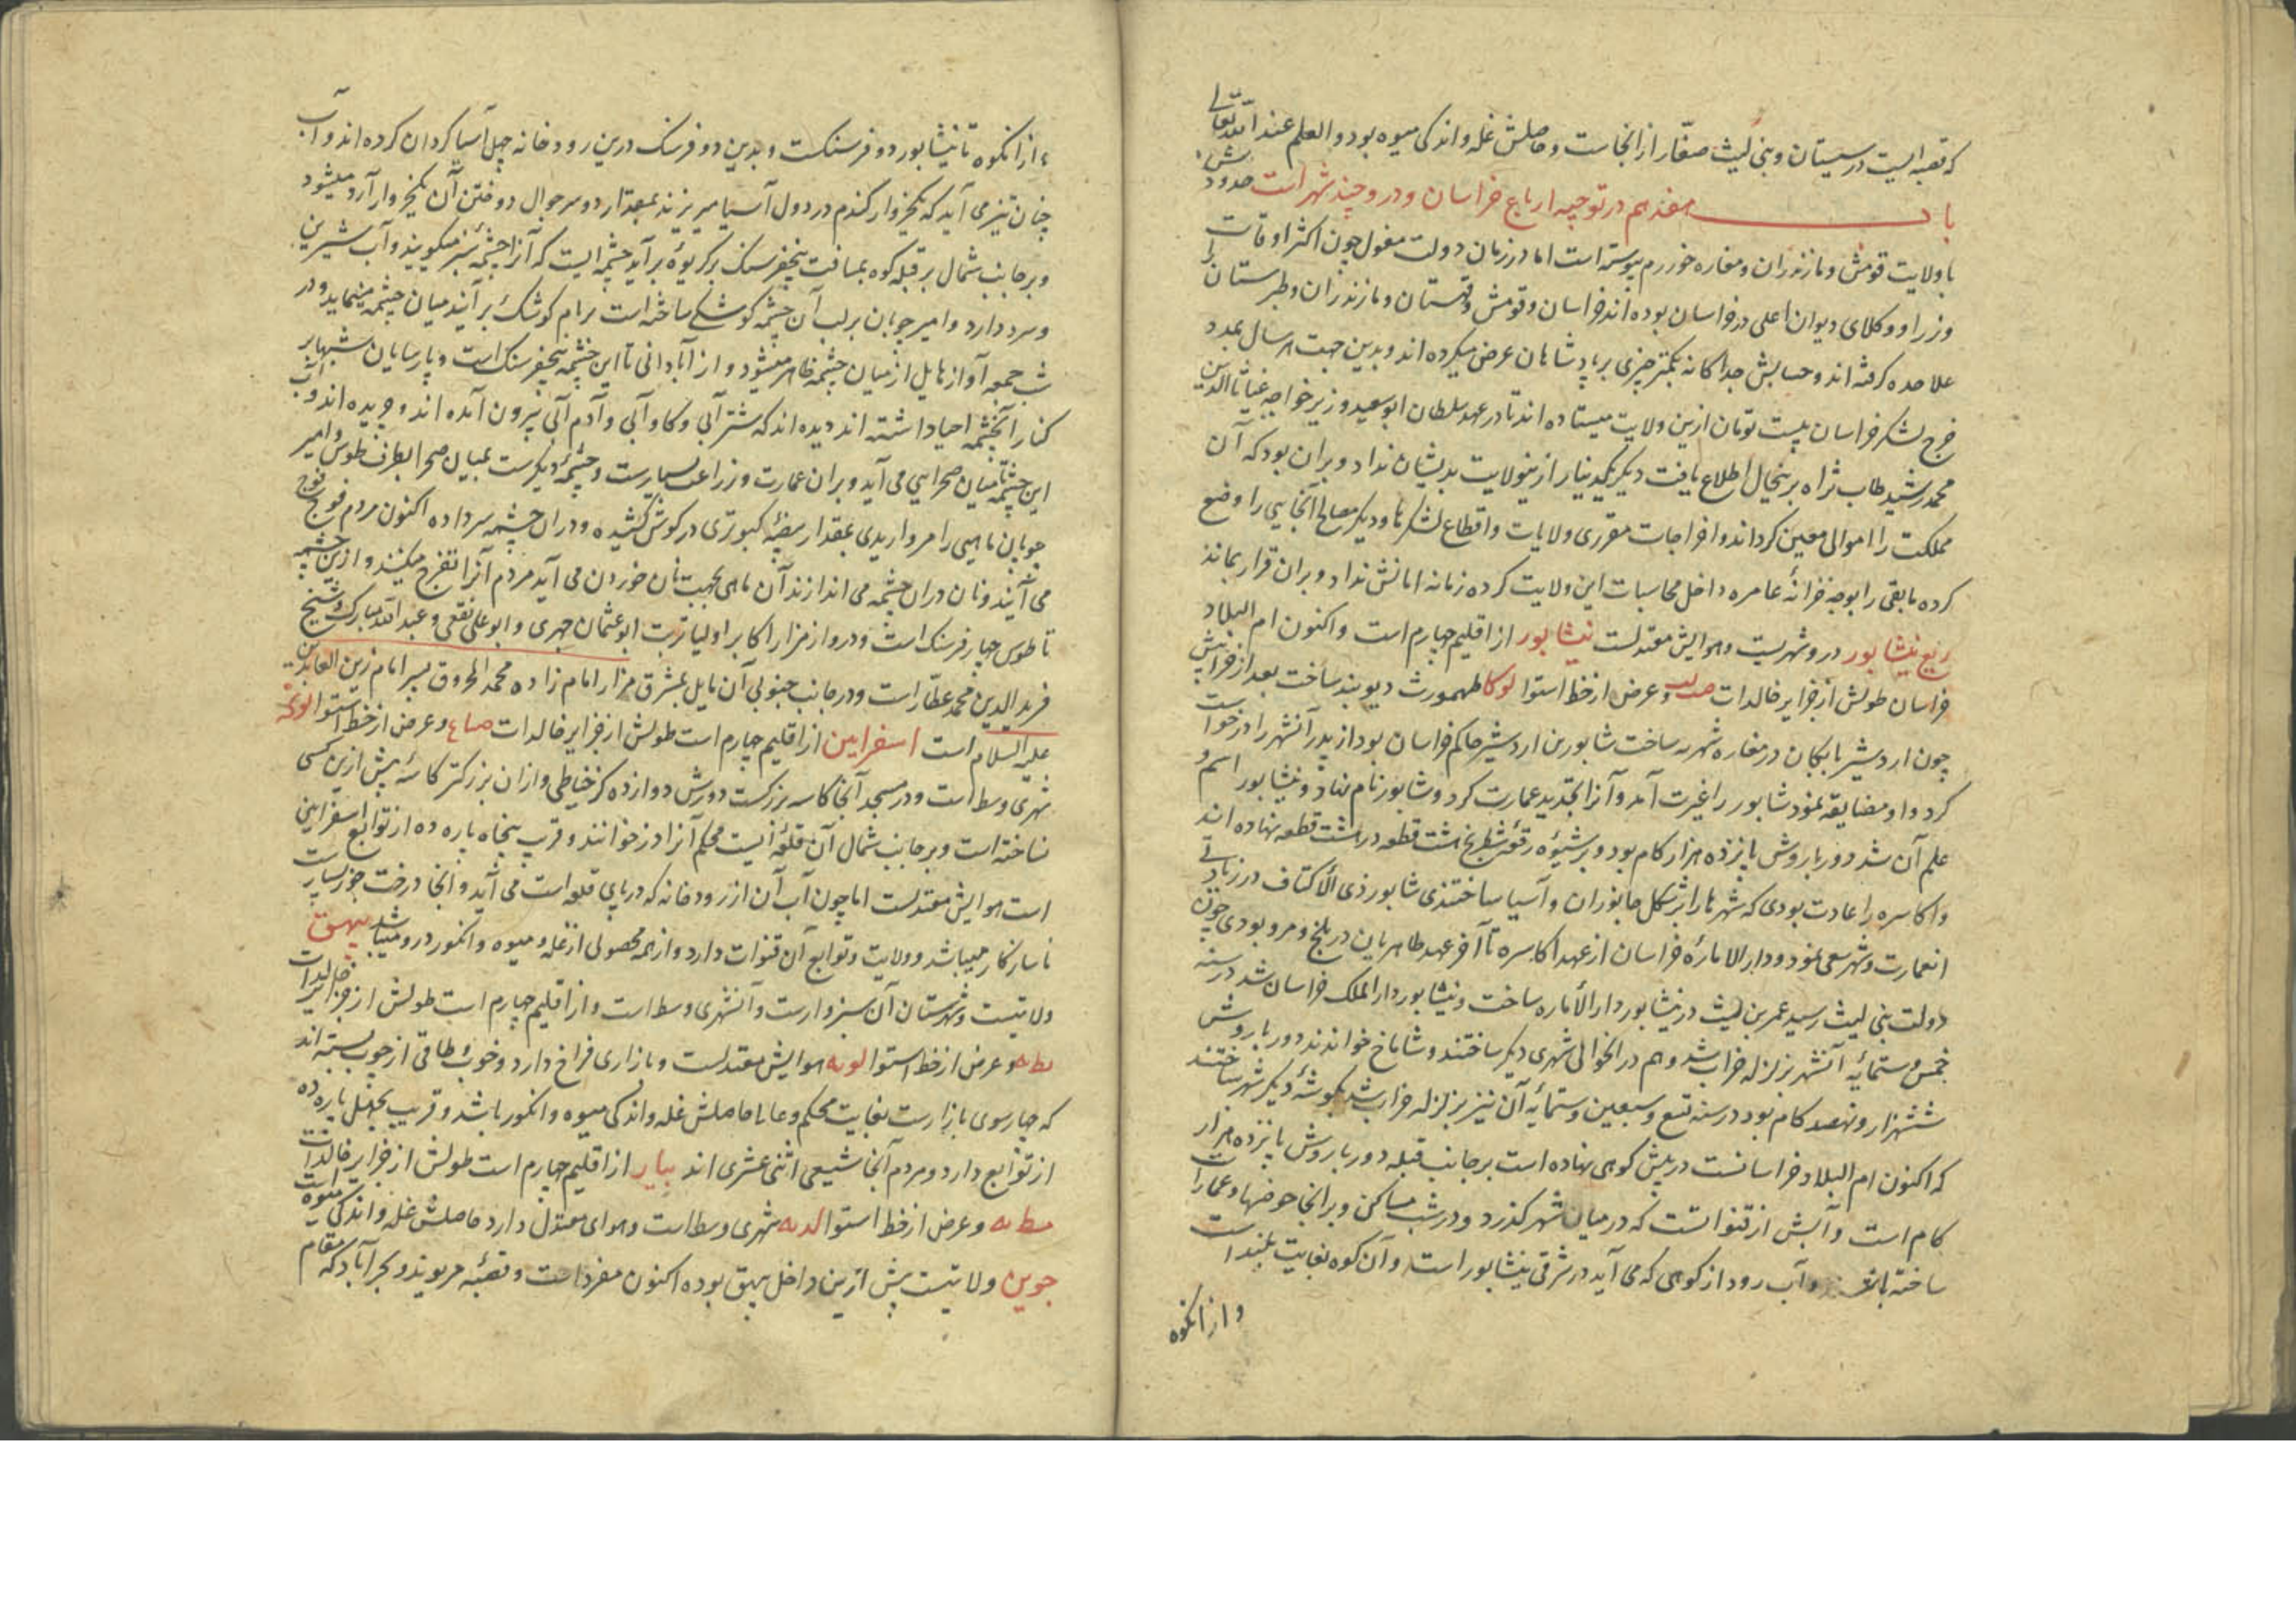 که قصبه‌ایست در سیستان و بنی لیث صفّار از انجاست و حاصلش غله و اندکی میوه بود و العلم عند الله تعالی
باب هفدهم در توجیه ارباع خراسان و درو چند شهر است حدودش
با ولایت قومش و مازندران و مفازه خوررم پیوسته است اما در زمان دولت مغول چون اکثر اوقات
وزرا و وکلای دیوان اعلی در خراسان بوده‌اند خراسان و قومش و قهستان و مازندران و طبرستان را
علاحده گرفته‌اند و حسابش جداگانه بکمتر چیزی بر پادشاهان عرض میکرده‌اند و بدین جهت هر سال بمدد
خرج لشکر خراسان بیست تومان ازین ولایت میستاده‌اند تا در عهد سلطان ابوسعید وزیر خواجه غیاث الدین
محمد رشید طاب ثراه برینحال اطلاع یافت دیگر یکدینار ازینولایت بدیشان نداد و بران بود که آن
مملکت را اموالی معین گرداند و اخراجات مقرری ولایات و اقطاع لشکرها و دیگر مصالح آنجایی را وضع
کرده مابقی را بوجه خزانهٔ عامره داخل محاسبات این ولایت کرده زمانه امانش نداد و بران قرار بماند
ربع نیشابور درو شهریست و هوایش معتدلست نیشابور از اقلیم چهارم است و اکنون ام البلاد
خراسان طولش از جزایر خالدات صدلب و عرض از خط استوا لوکا طهمورث دیوبند ساخت بعد از خرابیش
چون اردشیر بابکان در مفازه شهر به ساخت شابور بن اردشیر حاکم خراسان بود از پدر آنشهر را درخواست
کرد و او مضایقه نمود شابور را غیرت آمد و آنرا بتجدید عمارت کرد و شابور نام نهاد و نیشابور اسم و
علم آن شد دور باروش پانزده هزار گام بود و بر شیوهٔ رقعهٔ شطرنج هشت قطعه در هشت قطعه نهاده‌اند
و اکاسره را عادت بودی که شهرها را بر شکل جانوران و آسیا ساختندی شابور ذی الاکتاف در زیادتی
انعمارت و شهر سعی نمود و دار الامارهٔ خراسان از عهد اکاسره تا آخر عهد طاهریان در بلخ و مرو بودی چون
دولت بنی لیث رسید عمر بن لیث در نیشابور دار الاماره ساخت و نیشابور دار الملک خراسان شد در سنه
خمس و ستمائه آنشهر بزلزله خراب شد و هم در انحوالی شهری دیگر ساختند و شاداخ خواندند دور باروش
ششهزار و نهصد گام بود در سنه تسع و سبعین و ستمائه آن نیز بزلزله خراب شد بگوشهٔ دیگر شهر ساختند
که اکنون ام البلاد خراسانست در پیش کوهی نهاده است بر جانب قبله دور باروش پانزده هزار
گام است و آبش از قنواتست که در میان شهر گذرد و در شب مساکن و بر انجا حوضها و عمارات
ساخته باشند و آب رود از کوهی که می‌آید در شرقی نیشابور است و آن کوه بغایت بلند است
و از انکوه
و از انکوه تا نیشابور دو فرسنگست و بدین دو فرسنگ درین رودخانه چهل آسیا گردان کرده‌اند و آب
چنان تیز می‌آید که یکخروار گندم در دول آسیا میریزند بمقدار دو سر جوال دوختن آن یکخروار آرد میشود
و بر جانب شمال بر قبله کوه بمسافت پنجفرسنگ بر گریوهٔ برآید چشمه‌ایست که آنرا چشمهٔ سبز میگویند و آب شیرین
و سرد دارد و امیر چوبان بر لب آن چشمه کوشکی ساخته است بر بام کوشک برآیند میان چشمه مینماید و در
شب جمعه آواز هایل از میان چشمه ظاهر میشود و از آبادانی تا این چشمه پنجفرسنگ است و پارسایان شبها بر
کنار آنچشمه احیا داشته‌اند دیده‌اند که شتر آبی و گاو آبی و آدم آبی بیرون آمده‌اند و چریده‌اند و آب
این چشمه تا میان صحرایی می‌آید و بران عمارت و زراعت بسیارست و چشمهٔ دیگرست بمیان صحرا بطرف طوس و امیر
چوبان ماهیی را مرواریدی بمقدار بیضهٔ کبوتری در گوش کشیده و در ان چشمه سر داده اکنون مردم فوج فوج
می‌آیند و نان دران چشمه می‌اندازند آن ماهی بجهت نان خوردن می‌آید مردم آنرا تفرج میکنند و ازین چشمه
تا طوس چهار فرسنگ است و درو از مزار اکابر اولیا تربت ابو عثمان جیری و ابو علی ثقفی و عبد الله مبارک و شیخ
فرید الدین محمد عطّار است و در جانب جنوبی آن مایل بمشرق مزار امام زاده محمد المحروق پسر امام زین العابدین
علیه السلام است اسفراین از اقلیم چهارم است طولش از جزایر خالدات صاع و عرض از خط استوا لوک
شهری وسط است و در مسجد آنجا کاسه بزرگست دورش دوازده گز خیاطی و ازان بزرگتر کاسهٔ پیش ازین کسی
نساخته است و بر جانب شمال آن قلعه‌ایست محکم آنرا در زر خوانند و قرب پنجاه پاره ده از توابع اسفراین
است هوایش معتدلست اما چون آب آن از رودخانه که در پای قلعه است می‌آید و انجا درخت جوز بسیار است
ناسازگار میباشد و ولایت و توابع آن قنوات دارد و از همه محصولی از غله و میوه و انگور درو میباشد بیهق
ولایتیست و شهرستان آن سبزوارست و آنشهری وسط است و از اقلیم چهارم است طولش از جزایر خالدات
سطه و عرض از خط استوا لوبه هوایش معتدلست و بازاری فراخ دارد و خوب و طاقی از چوب بسته‌اند
که چهارسوی بازارست بغایت محکم و عالی حاصلش غله و اندکی میوه و انگور باشد و قریب بچهل پاره ده
از توابع دارد و مردم آنجا شیعی اثنی عشری‌اند بیار از اقلیم چهارم است طولش از جزایر خالدات
سطه و عرض از خط استوا لدبه شهری وسط است و هوای معتدل دارد حاصلش غله و اندکی میوه است
جوین ولایتیست پیش ازین داخل بیهق بوده اکنون مفرد است و قصبهٔ فریوند و بحرآباد که مقام